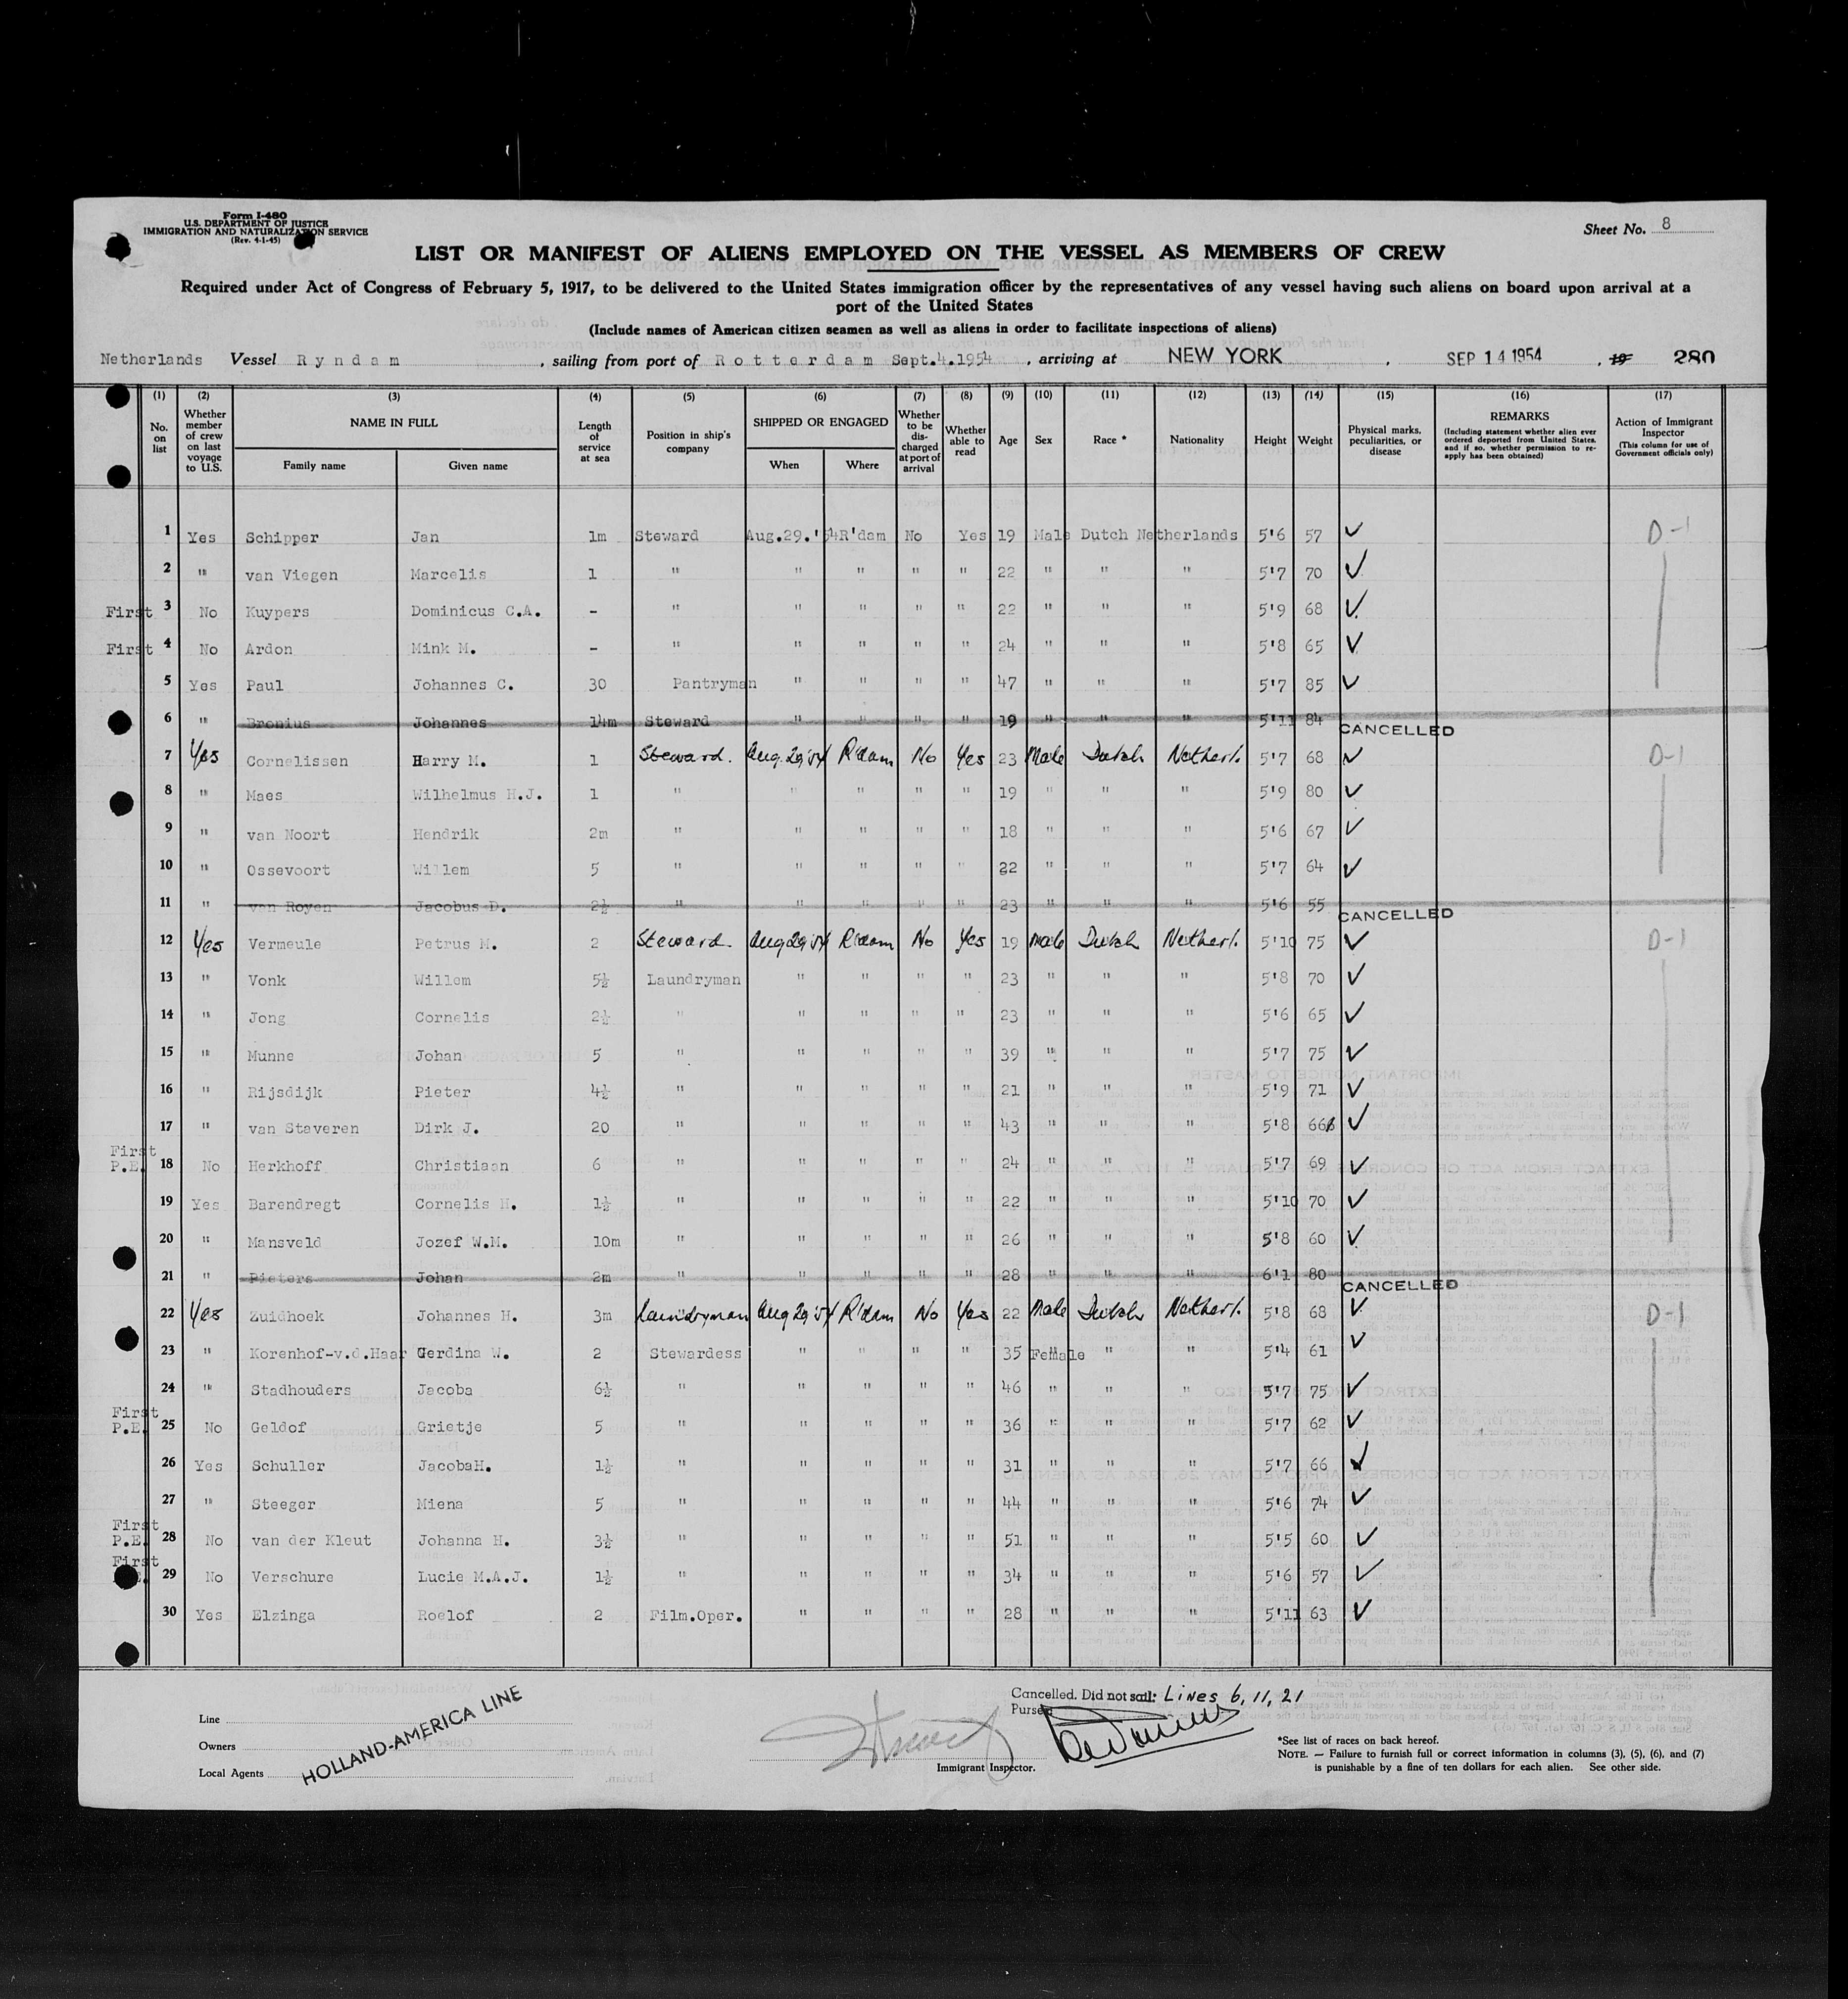 Form I-480
U.S. DEPARTMENT OF JUSTICE
IMMIGRATION AND NATURALIZATION SERVICE
(Rev. 4-1-45)
Sheet No. 8
LIST OR MANIFEST OF ALIENS EMPLOYED ON THE VESSEL AS MEMBERS OF CREW
Required under Act of Congress of February 5, 1917, to be delivered to the United States immigration officer by the representatives of any vessel having such aliens on board upon arrival at a
port of the United States
(Include names of American citizen seamen as well as aliens in order to facilitate inspections of aliens)
Netherlands Vessel Ryndam, sailing from port of Rotterdam Sept.4.1954, arriving at NEW YORK, SEP 14 1954, 19 280
(1) (2) (3) (4) (5) (6) (7) (8) (9) (10) (11) (12) (13) (14) (15) (16) (17)
No. on list
Whether member of crew on last voyage to U.S.
NAME IN FULL
Family name
Given name
Length of service at sea
Position in ship's company
SHIPPED OR ENGAGED
When
Where
Whether to be discharged at port of arrival
Whether able to read
Age
Sex
Race *
Nationality
Height
Weight
Physical marks, peculiarities, or disease
REMARKS
(Including statement whether alien ever ordered deported from United States, and if so, whether permission to reapply has been obtained)
Action of Immigrant Inspector
(This column for use of Government officials only)
1 Yes Schipper Jan 1m Steward Aug.29.'54 R'dam No Yes 19 Male Dutch Netherlands 5'6 57 ✓ D-1
2 " van Viegen Marcelis 1 " " " " " 22 " " " 5'7 70 ✓
First 3 No Kuypers Dominicus C.A. - " " " " " 22 " " " 5'9 68 ✓
First 4 No Ardon Mink M. - " " " " " 24 " " " 5'8 65 ✓
5 Yes Paul Johannes C. 30 Pantryman " " " " 47 " " " 5'7 85 ✓
6 " Bronius Johannes 14m Steward " " " " 19 " " " 5'11 84 CANCELLED
7 Yes Cornelissen Harry M. 1 Steward. Aug.29'54 R'dam No Yes 23 Male Dutch Netherl. 5'7 68 ✓ D-1
8 " Maes Wilhelmus H.J. 1 " " " " " 19 " " " 5'9 80 ✓
9 " van Noort Hendrik 2m " " " " " 18 " " " 5'6 67 ✓
10 " Ossevoort Willem 5 " " " " " 22 " " " 5'7 64 ✓
11 " van Royen Jacobus D. 2½ " " " " " 23 " " " 5'6 55 CANCELLED
12 Yes Vermeule Petrus M. 2 Steward. Aug 29'54 R'dam No Yes 19 Male Dutch Netherl. 5'10 75 ✓ D-1
13 " Vonk Willem 5½ Laundryman " " " " 23 " " " 5'8 70 ✓
14 " Jong Cornelis 2½ " " " " " 23 " " " 5'6 65 ✓
15 " Munne Johan 5 " " " " " 39 " " " 5'7 75 ✓
16 " Rijsdijk Pieter 4½ " " " " " 21 " " " 5'9 71 ✓
17 " van Staveren Dirk J. 20 " " " " " 43 " " " 5'8 66 ✓
First
P.E. 18 No Herkhoff Christiaan 6 " " " " " 24 " " " 5'7 69 ✓
19 Yes Barendregt Cornelis H. 1½ " " " " " 22 " " " 5'10 70 ✓
20 " Mansveld Jozef W.M. 10m " " " " " 26 " " " 5'8 60 ✓
21 " Pieters Johan 2m " " " " " 28 " " " 6'1 80 CANCELLED
22 Yes Zuidhoek Johannes H. 3m Laundryman Aug 29'54 R'dam No Yes 22 Male Dutch Netherl. 5'8 68 ✓ D-1
23 " Korenhof-v.d.Haar Gerdina W. 2 Stewardess " " " " 35 Female " " 5'4 61 ✓
24 " Stadhouders Jacoba 6½ " " " " " 46 " " " 5'7 75 ✓
First
P.E. 25 No Geldof Grietje 5 " " " " " 36 " " " 5'7 62 ✓
26 Yes Schuller JacobaH. 1½ " " " " " 31 " " " 5'7 66 ✓
27 " Steeger Miena 5 " " " " " 44 " " " 5'6 74 ✓
First
P.E. 28 No van der Kleut Johanna H. 3½ " " " " " 51 " " " 5'5 60 ✓
First
29 No Verschure Lucie M.A.J. 1½ " " " " " 34 " " " 5'6 57 ✓
30 Yes Elzinga Roelof 2 Film.Oper. " " " " 28 " " " 5'11 63 ✓
Cancelled. Did not sail: Lines 6, 11, 21
Purser
Line
Owners
Local Agents
HOLLAND-AMERICA LINE
Immigrant Inspector.
*See list of races on back hereof.
NOTE. — Failure to furnish full or correct information in columns (3), (5), (6), and (7)
is punishable by a fine of ten dollars for each alien. See other side.